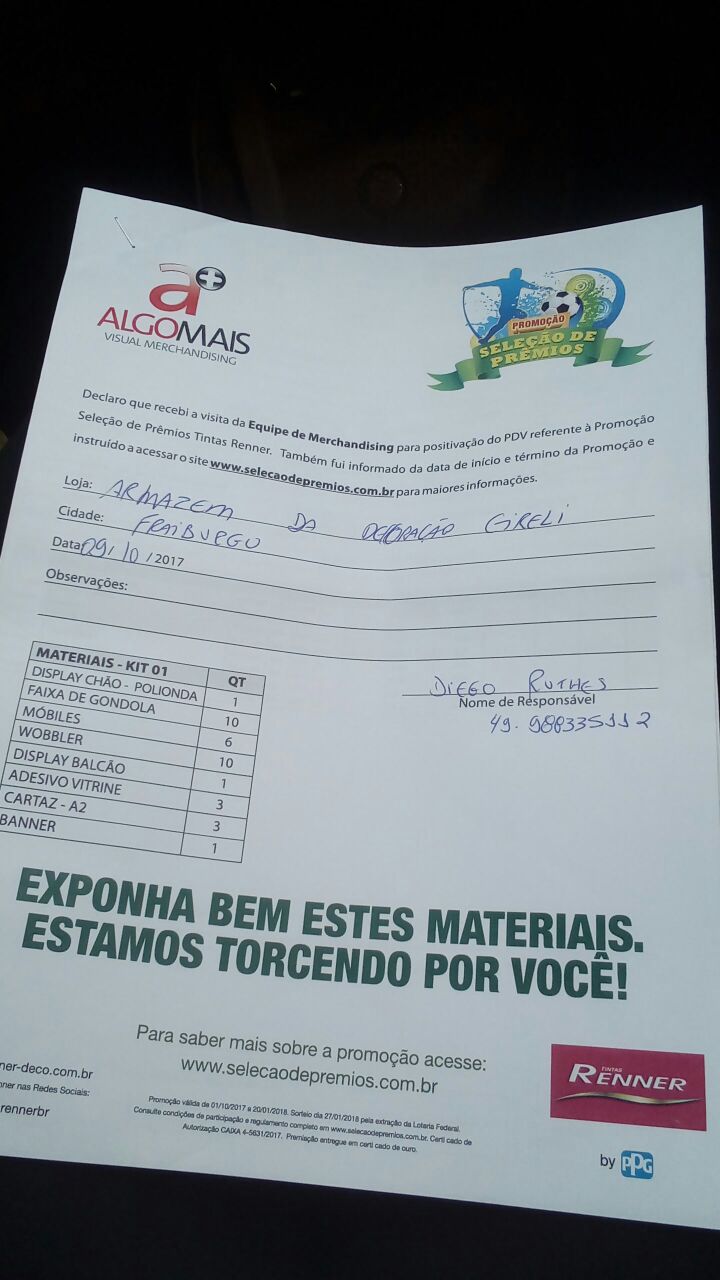 a+
ALGOMAIS
VISUAL MERCHANDISING
PROMOÇÃO
SELEÇÃO DE
PRÊMIOS
Declaro que recebi a visita da Equipe de Merchandising para positivação do PDV referente à Promoção
Seleção de Prêmios Tintas Renner. Também fui informado da data de início e término da Promoção e
instruído a acessar o site www.selecaodepremios.com.br para maiores informações.
Loja: ARMAZEM DA DECORAÇÃO GIRELI
Cidade: FRAIBURGO
Data 09/10/2017
Observações:
MATERIAIS - KIT 01 QT
DISPLAY CHÃO - POLIONDA 1
FAIXA DE GONDOLA 10
MÓBILES 6
WOBBLER 10
DISPLAY BALCÃO 1
ADESIVO VITRINE 3
CARTAZ - A2 3
BANNER 1
DIEGO RUTHES
Nome de Responsável
49. 988335112
EXPONHA BEM ESTES MATERIAIS.
ESTAMOS TORCENDO POR VOCÊ!
Para saber mais sobre a promoção acesse:
www.selecaodepremios.com.br
ner-deco.com.br
nner nas Redes Sociais:
rennerbr
Promoção válida de 01/10/2017 a 20/01/2018. Sorteio dia 27/01/2018 pela extração da Loteria Federal.
Consulte condições de participação e regulamento completo em www.selecaodepremios.com.br. Certi cado de
Autorização CAIXA 4-5631/2017. Premiação entregue em certi cado de ouro.
TINTAS
RENNER
by PPG